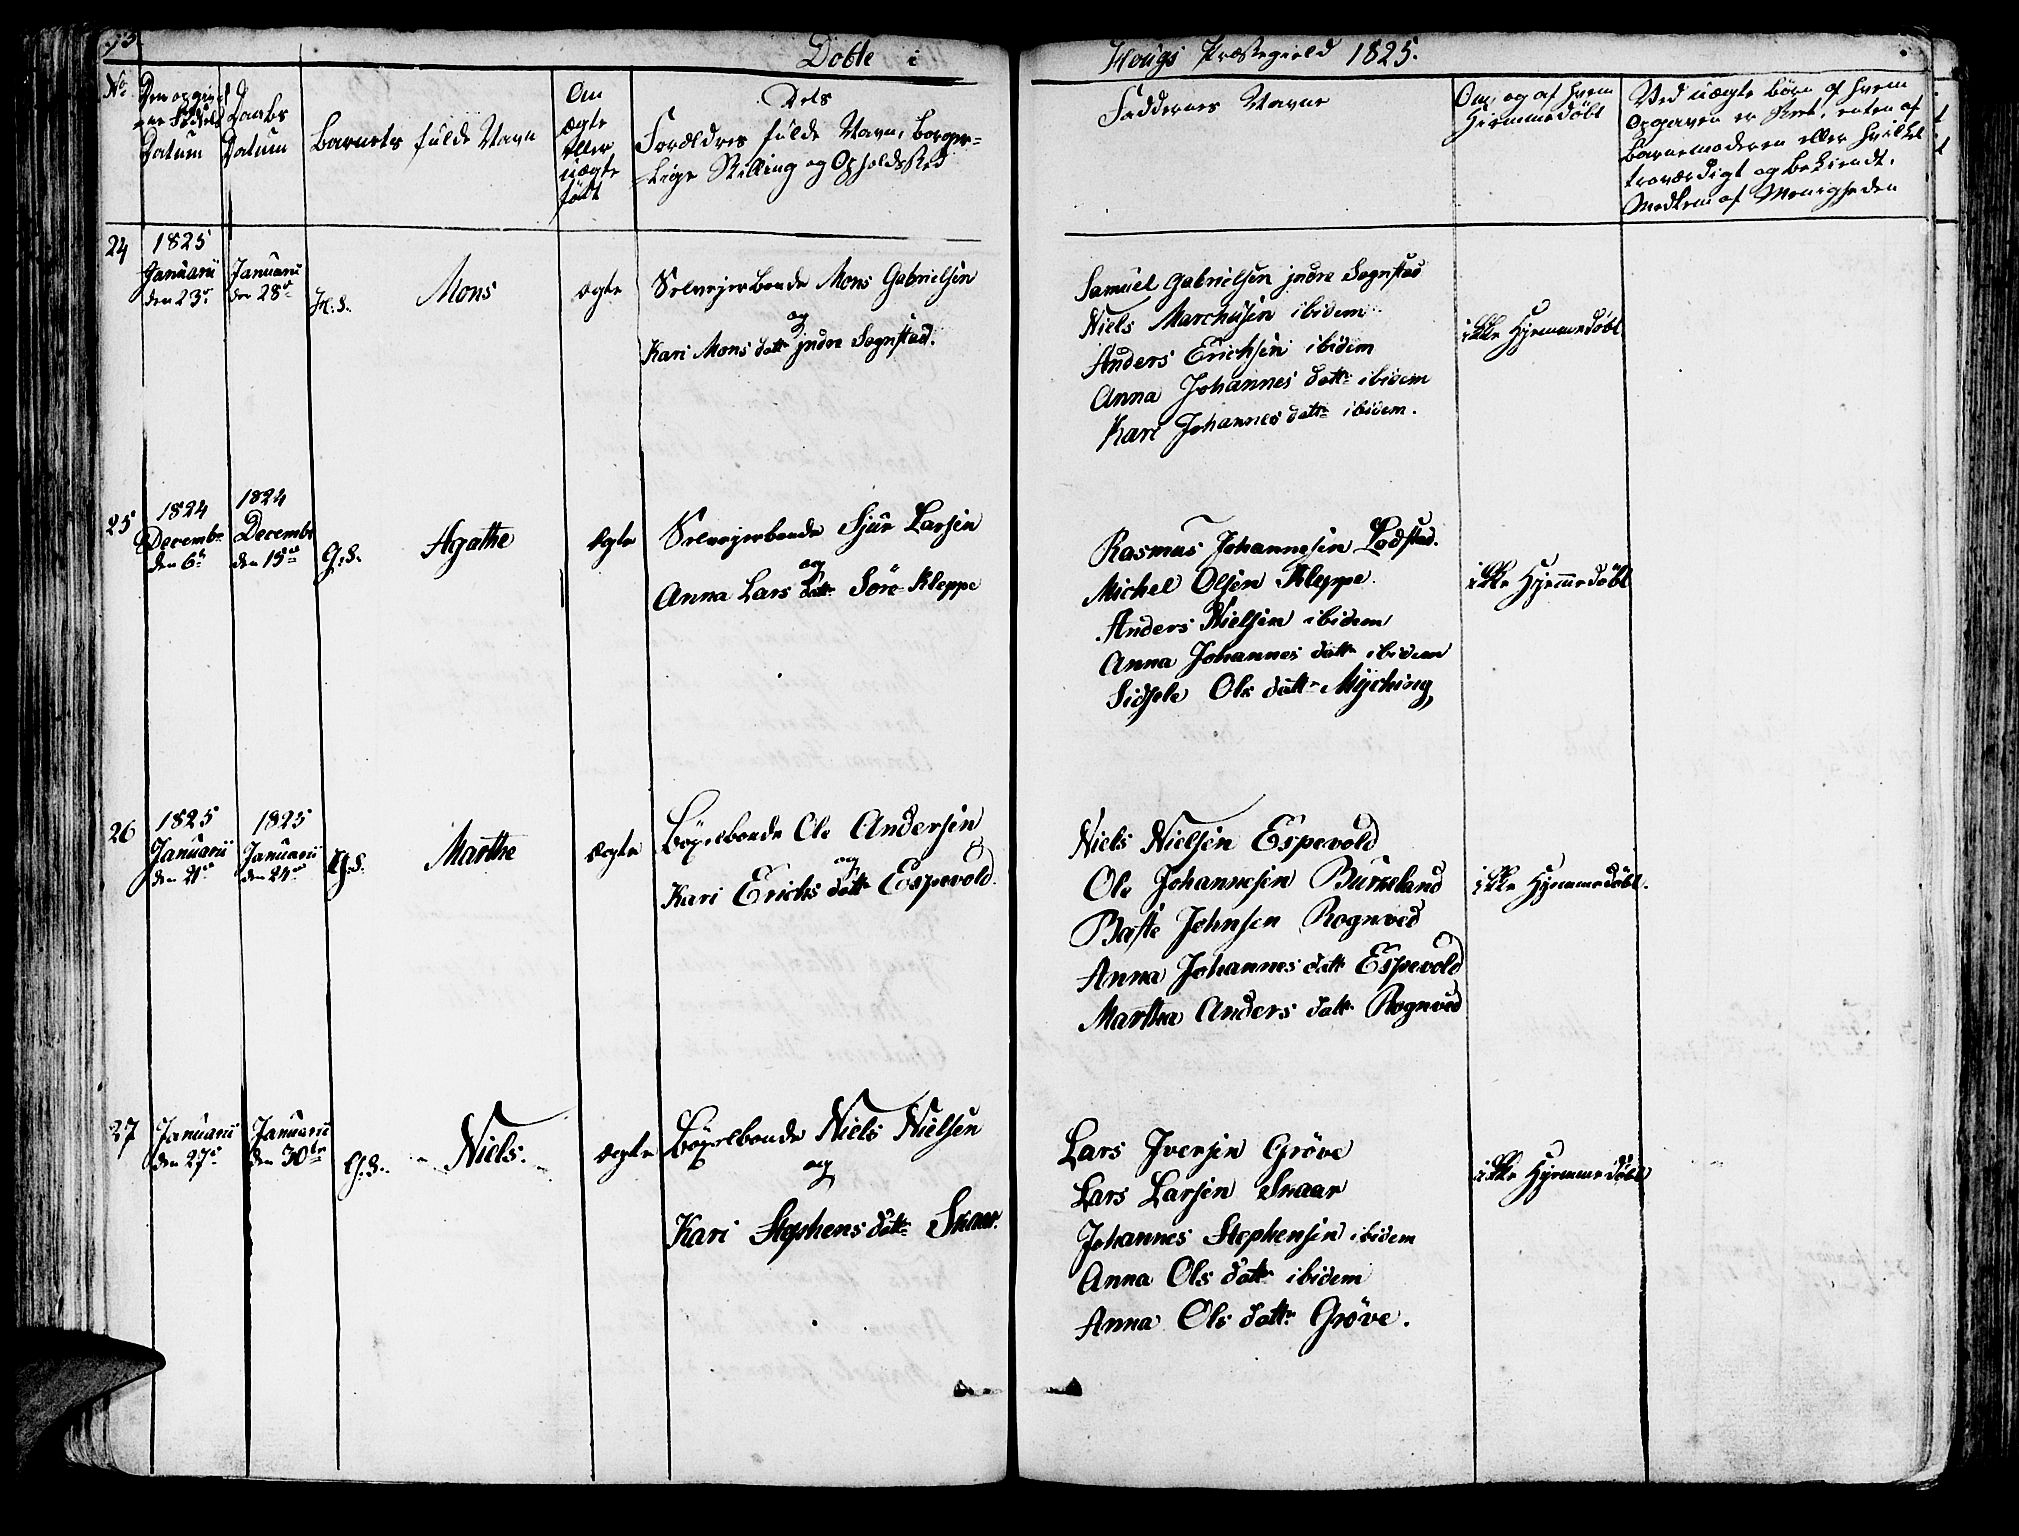 Døbte i Hougs Præstegield 1825.
No.
Den opgivne Fødsels Datum
Daabs Datum
Barnets fulde Navn
Om ægte eller uægte født
Dets Forældres fulde Navn, borgerlige Stilling og Opholdsted
Faddernes Navne
Om, og af hvem Hiemmedøbt
Ved uægte børn af hvem Opgaven er skeet, enten af Barnemoderen eller hvilket troværdigt og bekiendt Medlem af Menigheden
24
1825
Januarii den 23de
Januarii den 28de
H.S.
Mons
ægte
Selvejerbonde Mons Gabrielsen
og
Kari Mons datter jndre Sognstad.
Samuel Gabrielsen jndre Sognstad
Niels Marchusen ibidem
Anders Erichsen ibidem
Anna Johannes datter ibidem
Kari Johannes datter ibidem.
ikke Hjemmedøbt
25
1824
Decembr. den 6te
1824
Decembr den 15de
G.S.
Agathe
ægte
Selvejerbonde Sjur Larsen
og
Anna Lars datter Søre Kleppe
Rasmus Johannesen Lodstad.
Michel Olsen Kleppe.
Anders Nielsen ibidem
Anna Johannes datter ibidem
Sidsele Ols datter Myching
ikke Hjemmedøbt
26
1825
Januarii den 21de
1825
Januarii den 24de
G.S.
Marthe
ægte
Bøxelbonde Ole Andersen
og
Kari Erichs datter Espevold.
Niels Nielsen Espevold
Ole Johannesen Burkeland
Baste Johnsen Rognved
Anna Johannes datter Espevold
Martha Anders datter Rognved
ikke Hjemmedøbt.
27
Januarii den 27de
Januarii den 30te
G.S.
Niels.
ægte
Bøxelbonde Niels Nielsen
og
Kari Stephens datter Skaar.
Lars Iversen Grøve
Lars Larsen Skaar
Johannes Stephensen ibidem
Anna Ols datter ibidem
Anna Ols datter Grøve.
ikke Hjemmedøbt